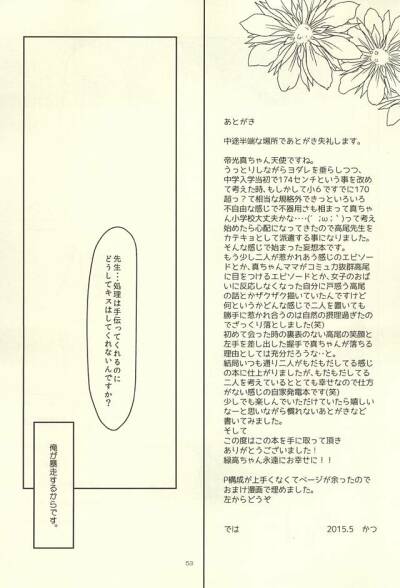 あとがき
中途半端な場所であとがき失礼します。
帝光真ちゃん天使ですね。
うっとりしながらヨダレを垂らしつつ、
中学入学当初で174センチという事を改め
て考えた時、もしかして小６ですでに170
超っ？て相当な規格外できっといろいろ
不自由な感じで不器用さも相まって真ちゃ
ん小学校大丈夫かな････(´;ω;｀)って考え
始めたら心配になってきたので高尾先生を
カテキョとして派遣する事になりました。
そんな感じで始まった妄想本です。
もう少し二人が惹かれあう感じのエピソー
ドとか、真ちゃんママがコミュ力抜群高尾
に目をつけるエピソードとか、女子のおぱ
いに反応しなくなった自分に戸惑う高尾
の話とかザクザク描いていたんですけど
何というかどんな感じで二人を置いても
勝手に惹かれ合うのは自然の摂理過ぎたの
でざっくり落としました(笑)
初めて会った時の裏表のない高尾の笑顔と
左手を差し出した握手で真ちゃんが落ちる
理由としては充分だろうな…と。
結局いつも通り二人がもだもだしてる感じ
の本に仕上がりましたが、もだもだしてる
二人を考えているととても幸せなので仕方
がない感じの自家発電本です(笑)
少しでも楽しんでいただけていたら嬉しい
なーと思いながら慣れないあとがきなど
書いてみました。
そして
この度はこの本を手に取って頂き
ありがとうございました！
緑高ちゃん永遠にお幸せに！！
P構成が上手くなくてページが余ったので
おまけ漫画で埋めました。
左からどうぞ
では 2015.5 かつ
先生…処理は手伝ってくれるのに
どうしてキスはしてくれないんですか？
俺が暴走するからです。
53